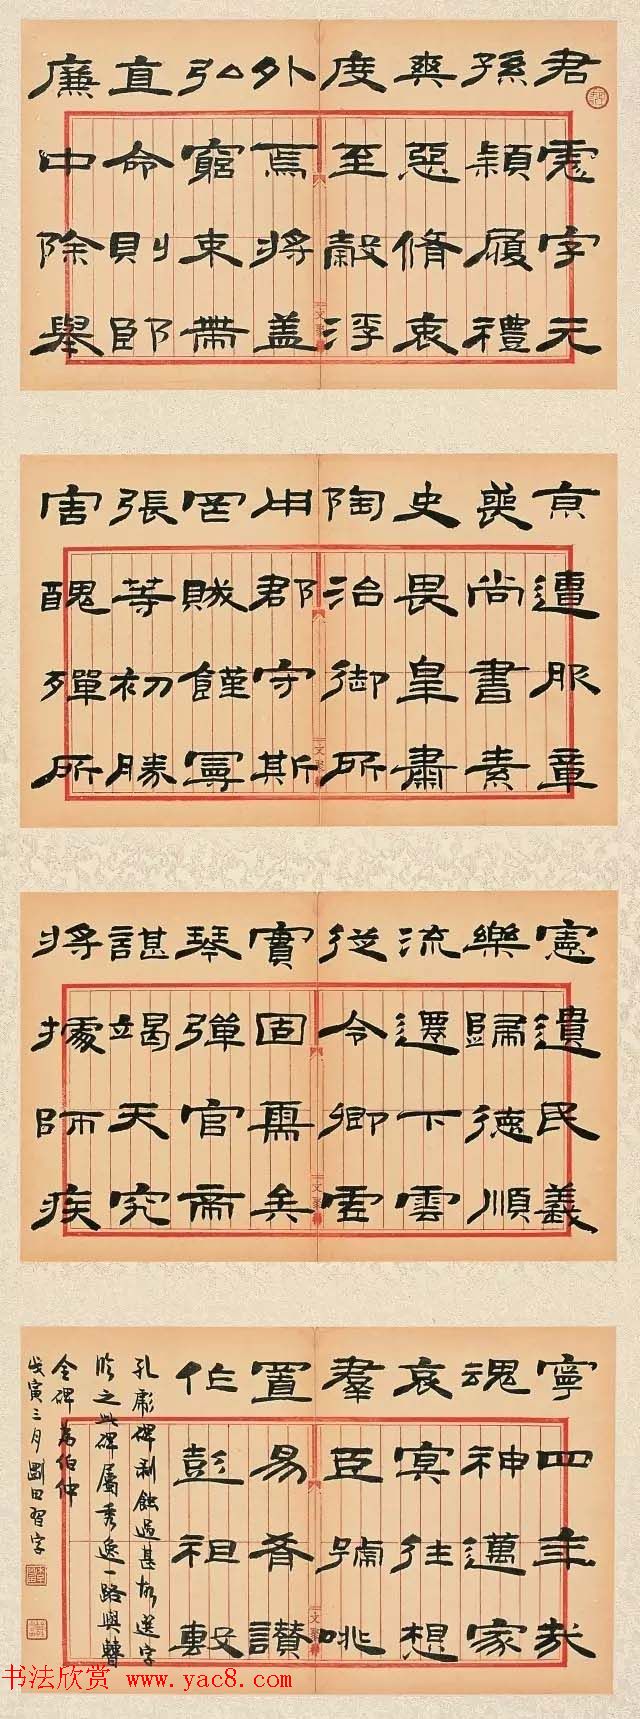 君字元
孫穎履禮
爽惡脩衷
度至穀浮
外焉將盖
弘窮束帶
直命則郎
廉中除舉
京遭服章
喪尚書素
史畏皇肅
陶治御所
郡守斯
賊饉
張等初勝
害醜殫所
憲遺民義
樂歸德順
流遷下雲
從令卿虛
實固矣
琴彈官
諶竭天究
將據師疾
寧四年哉
魂神邁家
哀冥往想
羣臣號咷
置易讚
作彭祖
孔彪碑剥蝕過甚故選字
臨之此碑屬秀逸一路與
仝碑為伯仲
戊寅三月剛田習字
书法欣赏 www.yac8.com